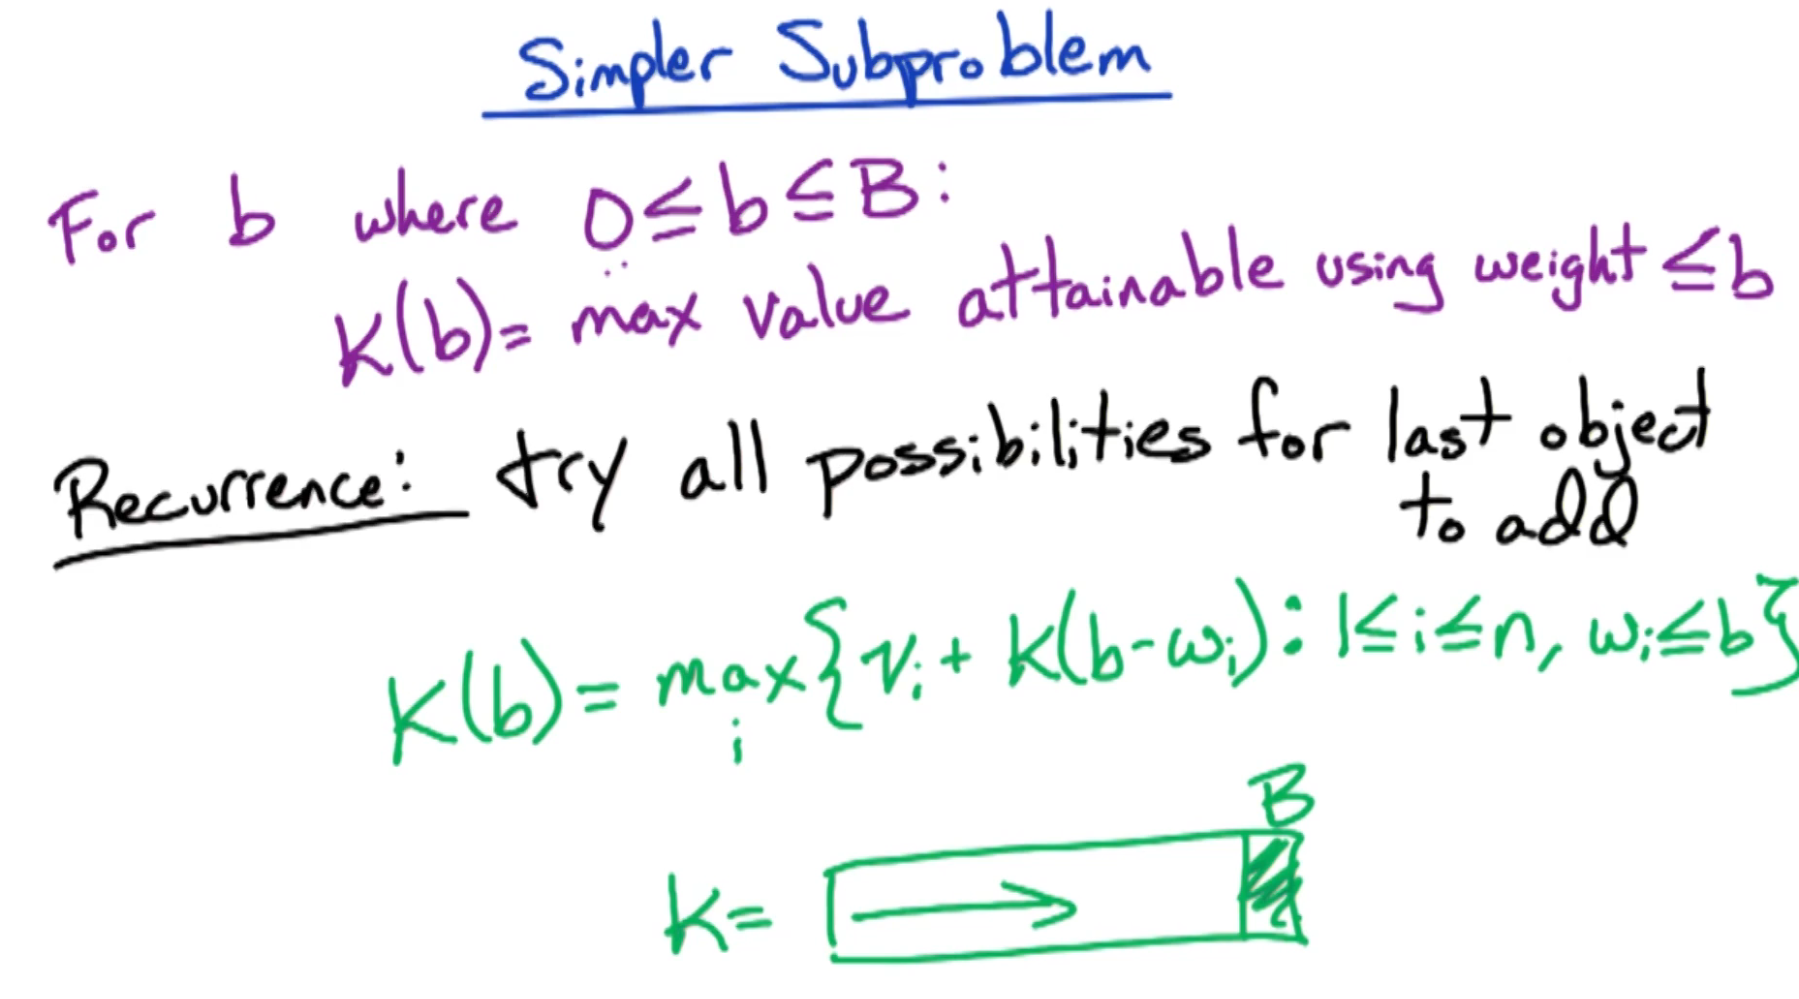 Simpler Subproblem
For b where 0≤b≤B:
K(b)= max value attainable using weight ≤b
Recurrence: try all possibilities for last object
to add
K(b) = max{v_i + K(b-w_i): 1≤i≤n, w_i≤b}
i
B
K=